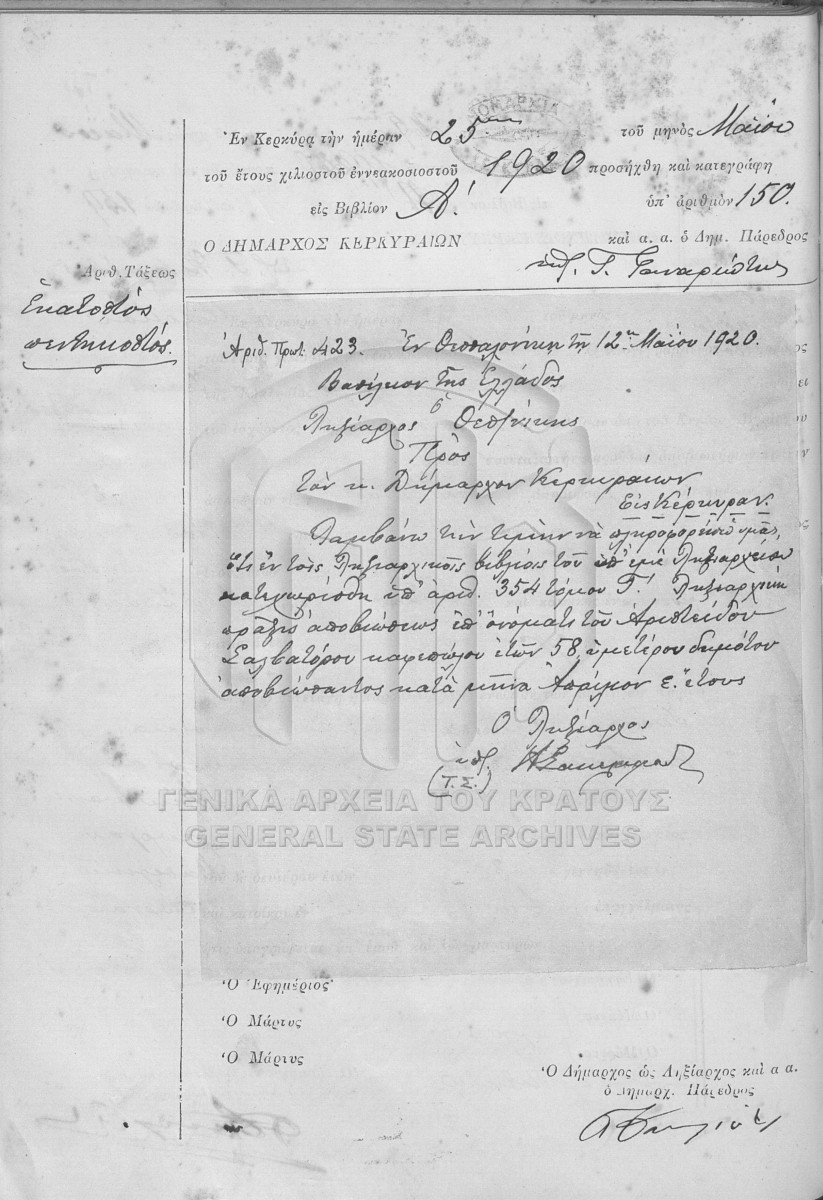 Ἐν Κερκύρᾳ τὴν ἡμέραν 25ην τοῦ μηνὸς Μαΐου
τοῦ ἔτους χιλιοστοῦ ἐννεακοσιοστοῦ 1920 προσήχθη καὶ κατεγράφη
εἰς Βιβλίον Α΄. ὑπ᾽ ἀριθμὸν 150.
Ο ΔΗΜΑΡΧΟΣ ΚΕΡΚΥΡΑΙΩΝ καὶ α. α. ὁ Δημ. Πάρεδρος
Ἀριθ. Τάξεως
Ἑκατοστὸς
πεντηκοστός.
Ἀριθ. Πρωτ. 423. Ἐν Θεσσαλονίκῃ τῇ 12ῃ Μαΐου 1920.
Βασίλειον τῆς Ἑλλάδος
ὁ
Ληξίαρχος Θεσ/νίκης
Πρὸς
τὸν κ. Δήμαρχον Κερκυραίων
Εἰς Κέρκυραν.
Λαμβάνω τὴν τιμὴν νὰ πληροφορήσω ὑμᾶς,
ὅτι ἐν τοῖς Ληξιαρχικοῖς βιβλίοις τοῦ ὑπ᾽ ἐμὲ Ληξιαρχείου
κατεχωρίσθη ὑπ᾽ ἀριθ. 354 τόμου Γ΄. Ληξιαρχικὴ
πρᾶξις ἀποβιώσεως ἐπ᾽ ὀνόματι τοῦ Ἀριστείδου
Σαλβατόρου καφεπώλου ἐτῶν 58, ὑμετέρου δημότου
ἀποβιώσαντος κατὰ μῆνα Ἀπρίλιον ἐ. ἔτους
Ὁ Ληξίαρχος
(Τ.Σ.)
ΓΕΝΙΚΑ ΑΡΧΕΙΑ ΤΟΥ ΚΡΑΤΟΥΣ
GENERAL STATE ARCHIVES
Ὁ Ἐφημέριος
Ὁ Μάρτυς
Ὁ Μάρτυς
Ὁ Δήμαρχος ὡς Ληξίαρχος καὶ α α.
ὁ Δημαρχ. Πάρεδρος